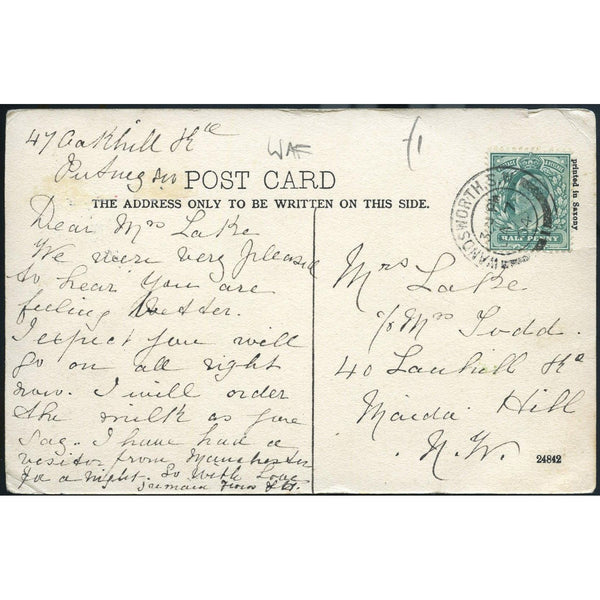 47 Oakhill Rd
Putney SW
WAF
£1
POST CARD
THE ADDRESS ONLY TO BE WRITTEN ON THIS SIDE.
Dear Mrs Lake
We were very pleased
to hear you are
feeling better.
I expect you will
go on all right
now. I will order
the milk as you
say. I have had a
visitor from Manchester
for a night. So with love
remain yours
Mrs Lake
c/o Mrs Todd.
40 Lauhill Rd
Maida Hill
N.W.
WANDSWORTH. S.W.
HALF PENNY
printed in Saxony
24842